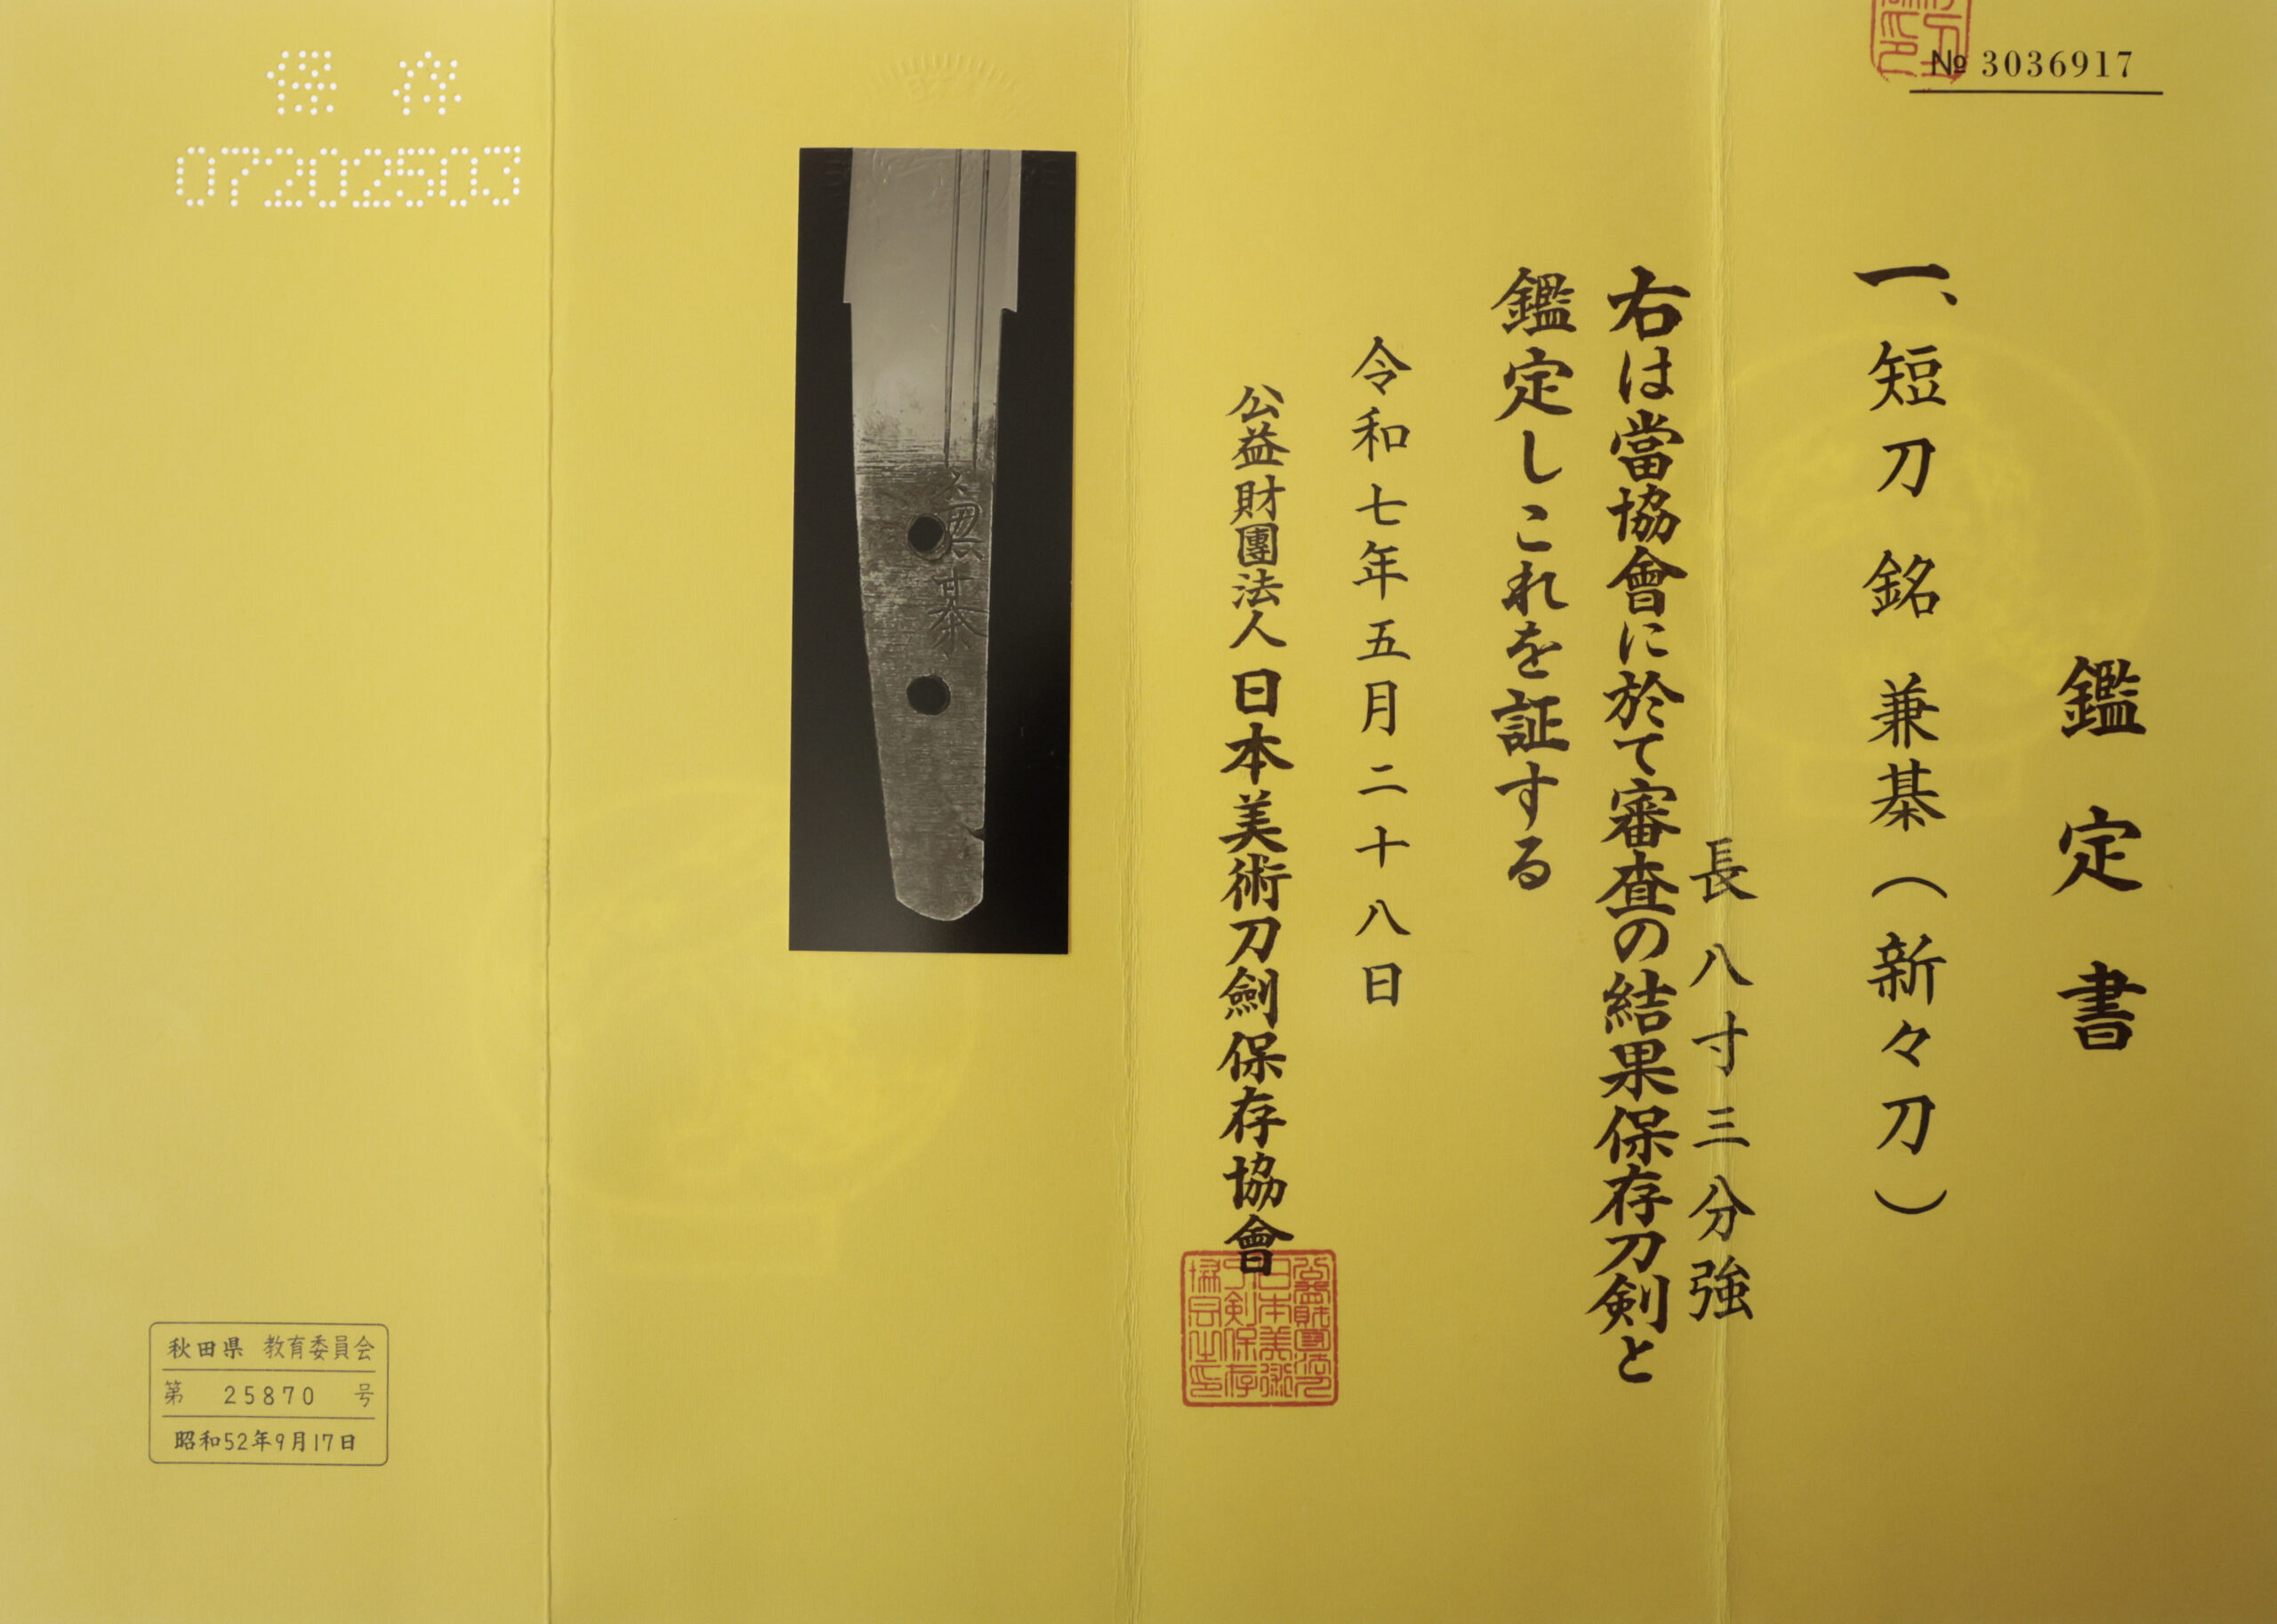 № 3036917
鑑定書
一、短刀 銘 兼棊（新々刀）
長 八寸三分強
右は當協會に於て審査の結果保存刀剣と
鑑定しこれを証する
令和七年五月二十八日
公益財團法人 日本美術刀劍保存協會
公益財團法人日本美術刀剣保存協會之印
保存
07202503
秋田県 教育委員会
第 25870 号
昭和52年9月17日